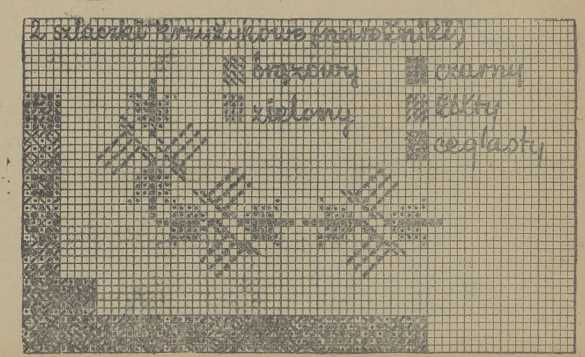 2 szlaczki krzyżykowe (narożniki)
brązowy czarny
zielony żółty
ceglasty